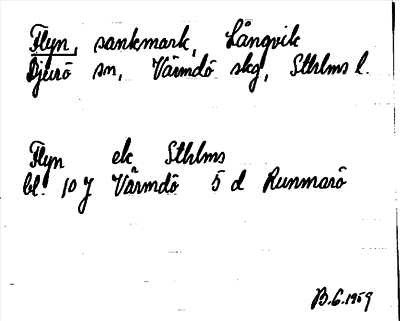 Flyn, sankmark, Långvik
Djurö sn, Värmdö skg, Sthlms l.
Flyn ek Sthlms
bl. 10 J Värmdö 5 d Runmarö
B.G. 1959